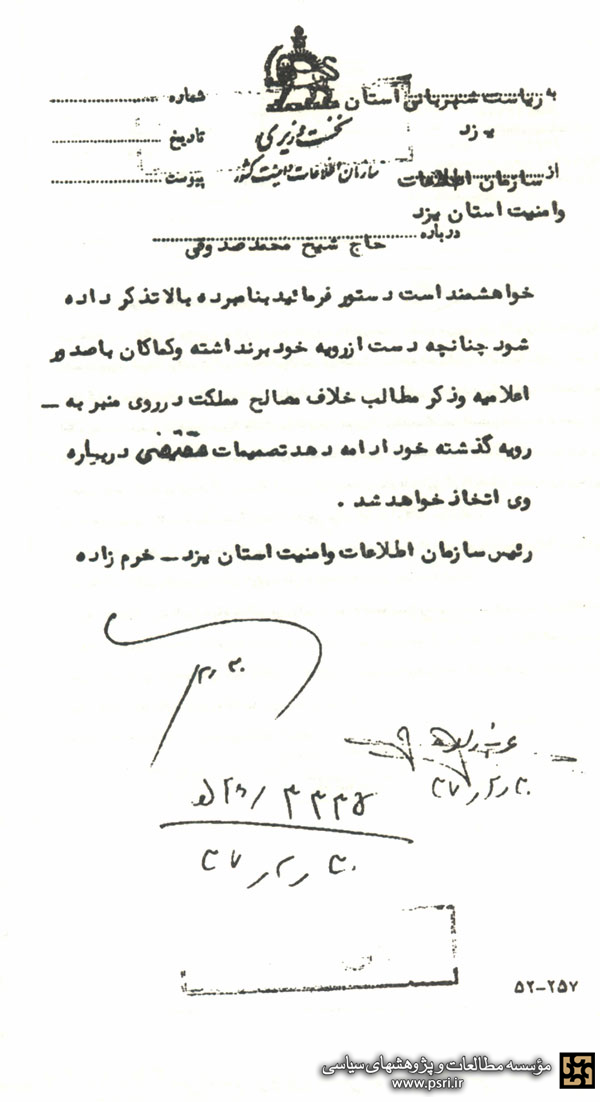 به ریاست شهربانی استان
یزد
شماره
نخست وزیری
تاریخ
از سازمان اطلاعات
سازمان اطلاعات و امنیت کشور
پیوست
وامنیت استان یزد
درباره حاج شیخ محمد صدوقی
خواهشمند است دستور فرمائید بنامبرده بالا تذکر داده
شود چنانچه دست از رویه خود برنداشته وکماکان باصدور
اعلامیه وذکر مطالب خلاف مصالح مملکت درروی منبر به ـ
رویه گذشته خود ادامه دهد تصمیمات مقتضی درباره
وی اتخاذ خواهد شد .
رئیس سازمان اطلاعات وامنیت استان یزد ـ خرم زاده
۵۲-۲۵۷
مؤسسه مطالعات و پژوهشهای سیاسی
www.psri.ir